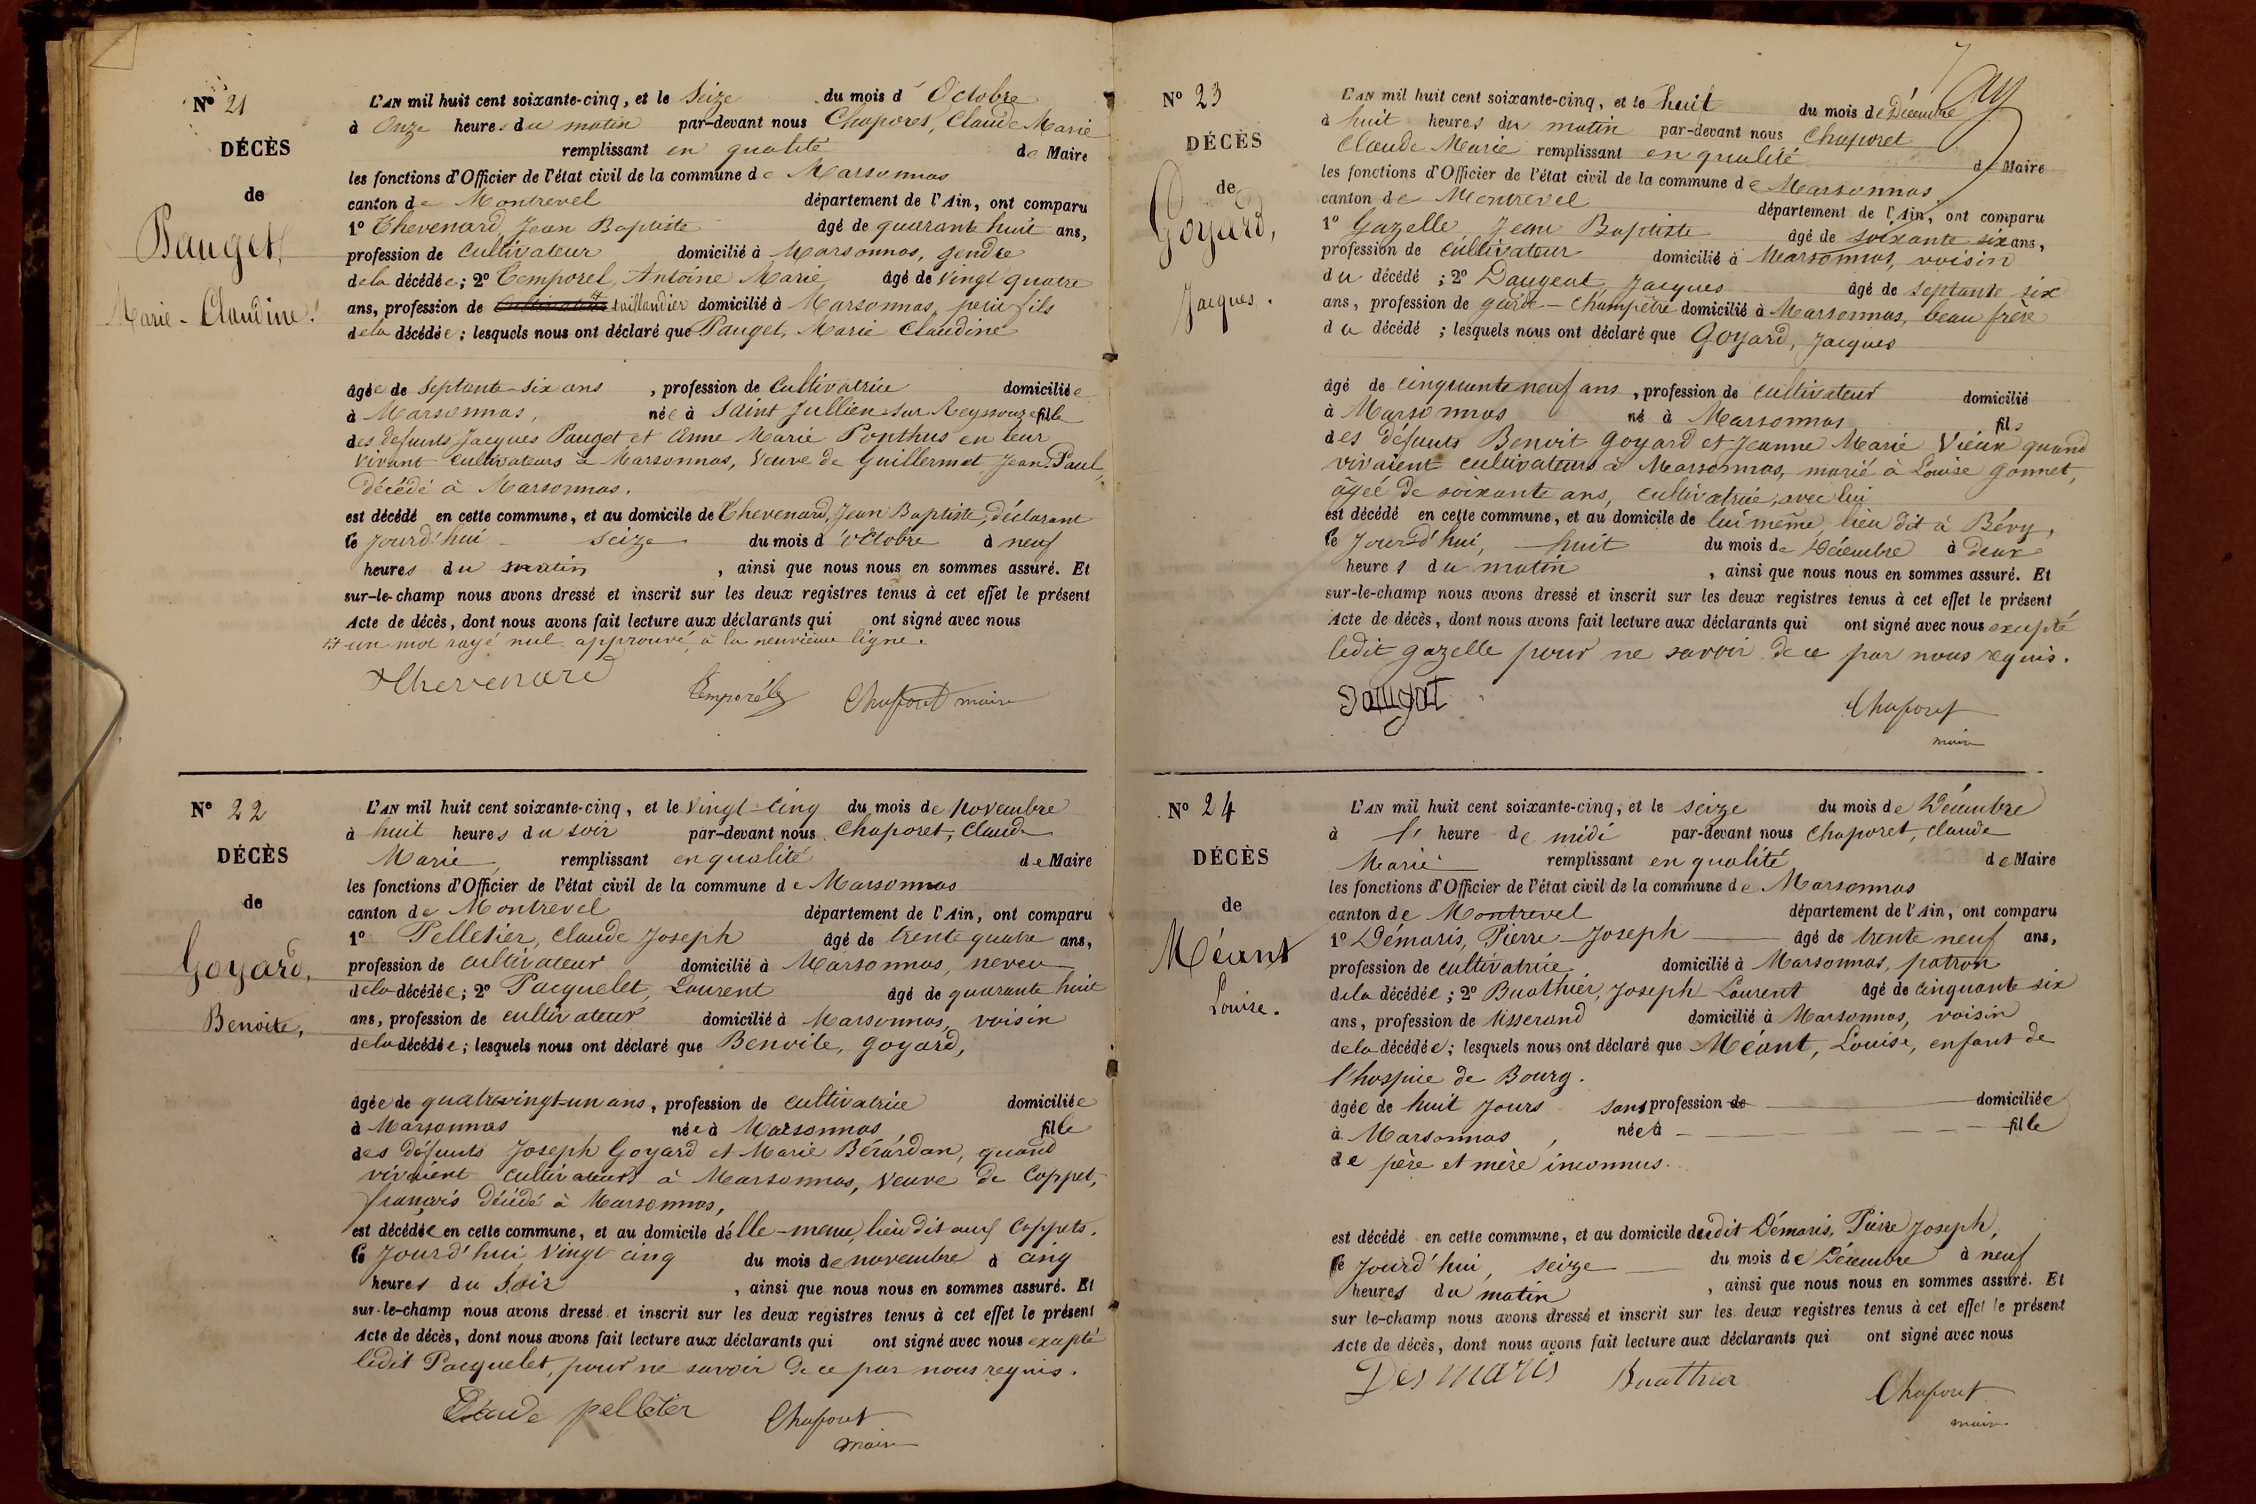 N° 21
DÉCÈS
de
Pauget,
Marie-Claudine.
L'AN mil huit cent soixante-cinq, et le Seize du mois d'Octobre
à Onze heures du matin par-devant nous Chaporet, Claude Marie
remplissant en qualité de Maire
les fonctions d'Officier de l'état civil de la commune de Marsonnas
canton de Montrevel département de l'Ain, ont comparu
1° Thevenard, Jean Baptiste âgé de quarante huit ans,
profession de cultivateur domicilié à Marsonnas, gendre
de la décédée; 2° Temporel, Antoine Marie âgé de vingt quatre
ans, profession de taillandier domicilié à Marsonnas, petit fils
de la décédée; lesquels nous ont déclaré que Pauget, Marie Claudine
âgée de septante-six ans, profession de Cultivatrice domiciliée
à Marsonnas, née à Saint Jullien sur Reyssouze fille
des défunts Jacques Pauget et Anne Marie Ponthus en leur
vivant cultivateurs à Marsonnas, Veuve de Guillermet Jean-Paul,
décédé à Marsonnas.
est décédé en cette commune, et au domicile de Thevenard, Jean Baptiste, déclarant
le jourd'hui seize du mois d'octobre à neuf
heures du matin, ainsi que nous nous en sommes assuré. Et
sur-le-champ nous avons dressé et inscrit sur les deux registres tenus à cet effet le présent
Acte de décès, dont nous avons fait lecture aux déclarants qui ont signé avec nous
un mot rayé nul approuvé, à la neuvième ligne.
Thevenard Temporel Chaporet maire
N° 22
DÉCÈS
de
Goyard,
Benoite,
L'AN mil huit cent soixante-cinq, et le vingt-cinq du mois de novembre
à huit heures du soir par-devant nous Chaporet, Claude
Marie remplissant en qualité de Maire
les fonctions d'Officier de l'état civil de la commune de Marsonnas
canton de Montrevel département de l'Ain, ont comparu
1° Pelletier, Claude Joseph âgé de trente quatre ans,
profession de cultivateur domicilié à Marsonnas, neveu
de la décédée; 2° Pacquelet, Laurent âgé de quarante huit
ans, profession de cultivateur domicilié à Marsonnas, voisin
de la décédée; lesquels nous ont déclaré que Benoite, Goyard,
âgée de quatrevingt-un ans, profession de cultivatrice domiciliée
à Marsonnas née à Marsonnas fille
des défunts Joseph Goyard et Marie Bérardan, quand
vivaient cultivateurs à Marsonnas, Veuve de Coppet,
françois décédé à Marsonnas,
est décédée en cette commune, et au domicile d'elle-meme, lieu dit aux Coppets.
le jourd'hui vingt cinq du mois de novembre à cinq
heures du soir, ainsi que nous nous en sommes assuré. Et
sur-le-champ nous avons dressé et inscrit sur les deux registres tenus à cet effet le présent
Acte de décès, dont nous avons fait lecture aux déclarants qui ont signé avec nous excepté
ledit Pacquelet, pour ne savoir de ce par nous requis.
Claude pelletier Chaporet
maire
N° 23
DÉCÈS
de
Goyard,
Jacques.
L'AN mil huit cent soixante-cinq, et le huit du mois de Décembre
à huit heures du matin par-devant nous Chaporet
Claude Marie remplissant en qualité de Maire
les fonctions d'Officier de l'état civil de la commune de Marsonnas
canton de Montrevel département de l'Ain, ont comparu
1° Gazelle, Jean Baptiste âgé de soixante six ans,
profession de cultivateur domicilié à Marsonnas, voisin
du décédé; 2° Daugeat, Jacques âgé de septante six
ans, profession de garde-champêtre domicilié à Marsonnas, beau frère
du décédé; lesquels nous ont déclaré que Goyard, Jacques
âgé de cinquante neuf ans, profession de cultivateur domicilié
à Marsonnas né à Marsonnas fils
des défunts Benoit Goyard et Jeanne Marie Vieux quand
vivaient cultivateurs à Marsonnas, marié à Louise Gonnet,
âgée de soixante ans, cultivatrice, avec lui
est décédé en cette commune, et au domicile de lui même, lieu dit à Bévy,
le jourd'hui, huit du mois de Décembre à deux
heures du matin, ainsi que nous nous en sommes assuré. Et
sur-le-champ nous avons dressé et inscrit sur les deux registres tenus à cet effet le présent
Acte de décès, dont nous avons fait lecture aux déclarants qui ont signé avec nous excepté
ledit gazelle pour ne savoir de ce par nous requis.
Daugat Chaporet
maire
N° 24
DÉCÈS
de
Méant
Louise.
L'AN mil huit cent soixante-cinq, et le seize du mois de Décembre
à l'heure de midi par-devant nous Chaporet, Claude
Marie remplissant en qualité de Maire
les fonctions d'Officier de l'état civil de la commune de Marsonnas
canton de Montrevel département de l'Ain, ont comparu
1° Démaris, Pierre Joseph âgé de trente neuf ans,
profession de cultivatrice domicilié à Marsonnas, patron
de la décédée; 2° Buathier, Joseph Laurent âgé de cinquante six
ans, profession de tisserand domicilié à Marsonnas, voisin
de la décédée; lesquels nous ont déclaré que Méant, Louise, enfant de
l'hospice de Bourg.
âgée de huit jours sans profession de domiciliée
à Marsonnas, née à fille
de père et mère inconnus.
est décédé en cette commune, et au domicile dudit Démaris, Pierre Joseph,
le jourd'hui, seize du mois de Décembre à neuf
heures du matin, ainsi que nous nous en sommes assuré. Et
sur le-champ nous avons dressé et inscrit sur les deux registres tenus à cet effet le présent
Acte de décès, dont nous avons fait lecture aux déclarants qui ont signé avec nous
Desmaris Buathier Chaporet
maire